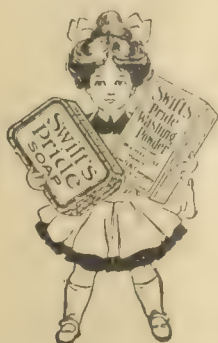 Swift's
Pride
SOAP
Swift's
Pride
Washing
Powder